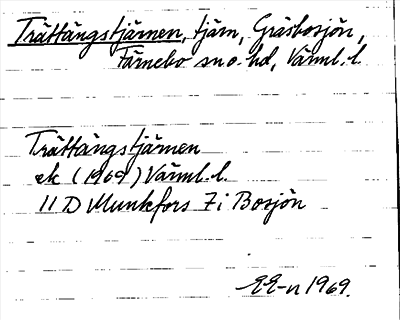 Trättängstjärnen, tjärn, Gräsbosjön,
Färnebo sn o. hd, Värml. l.
Trättängstjärnen
ek (1969) Värml. l.
11 D Munkfors 7 i Bosjön
EE-n 1969.